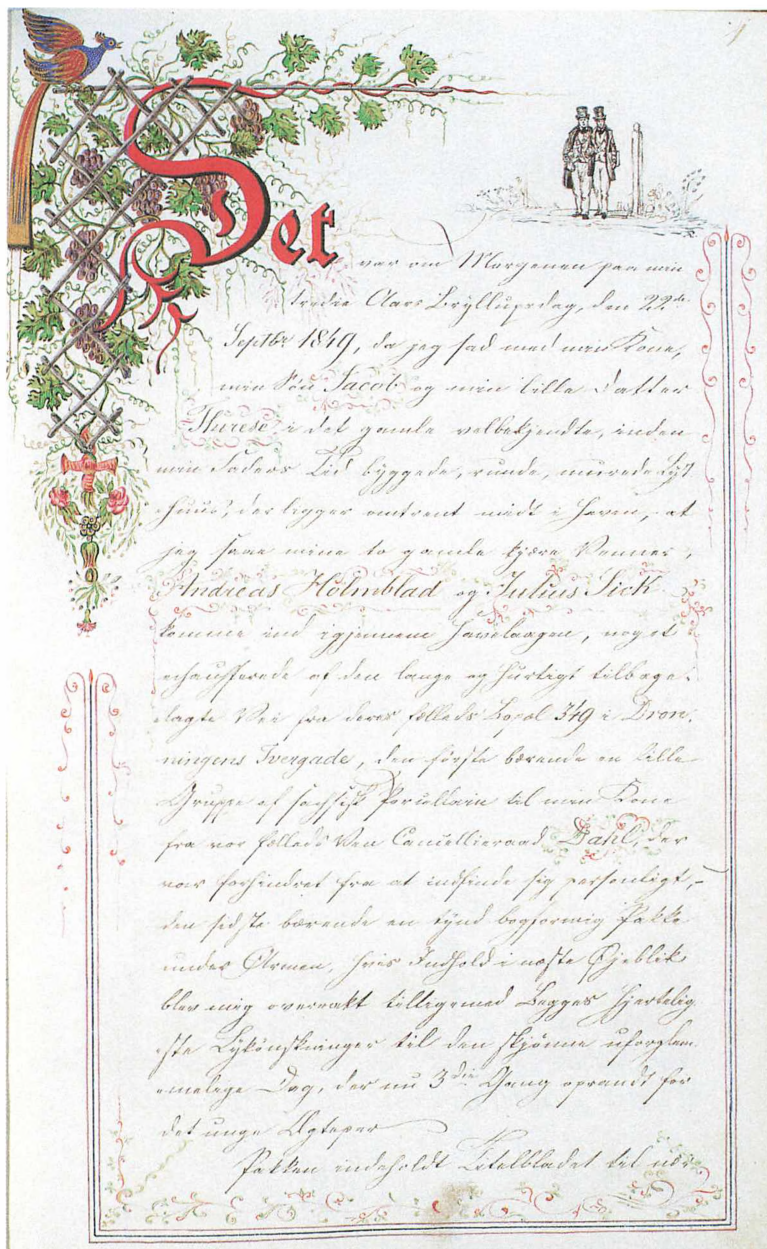 Det
var om Morgenen paa min
tredie Aars Bryllupsdag, den 22de
Septbr 1849, da jeg sad med min Kone,
min Søn Jacob og min lille Datter
Therese i det gamle velbekjendte, inden
min Faders Tid byggede, runde, murede Lyst
huus, der ligger omtrent midt i Haven, at
jeg saae mine to gamle kjære Venner,
Andreas Holmblad og Julius Sick
komme ind igjennem Havelaagen, noget
echaufferede af den lange og hurtigt tilbage-
lagte Vei fra deres fælleds Bopæl 349 i Dron-
ningens Tvergade, den første bærende en lille
Gruppe af sachsisk Porcellain til min Kone
fra vor fælleds Ven Cancelliraad Dahl, der
var forhindret fra at indfinde sig personligt,-
den sidste bærende en tynd bogformig Pakke
under Armen, hvis Indhold i næste Øjeblik
blev mig overrakt tilligemed Begges hjertelig
ste Lykønskninger til den skjønne uforglem
melige Dag, der nu 3die Gang oprandt for
det unge Ægtepar
Pakken indeholdt Titelbladet til nær-